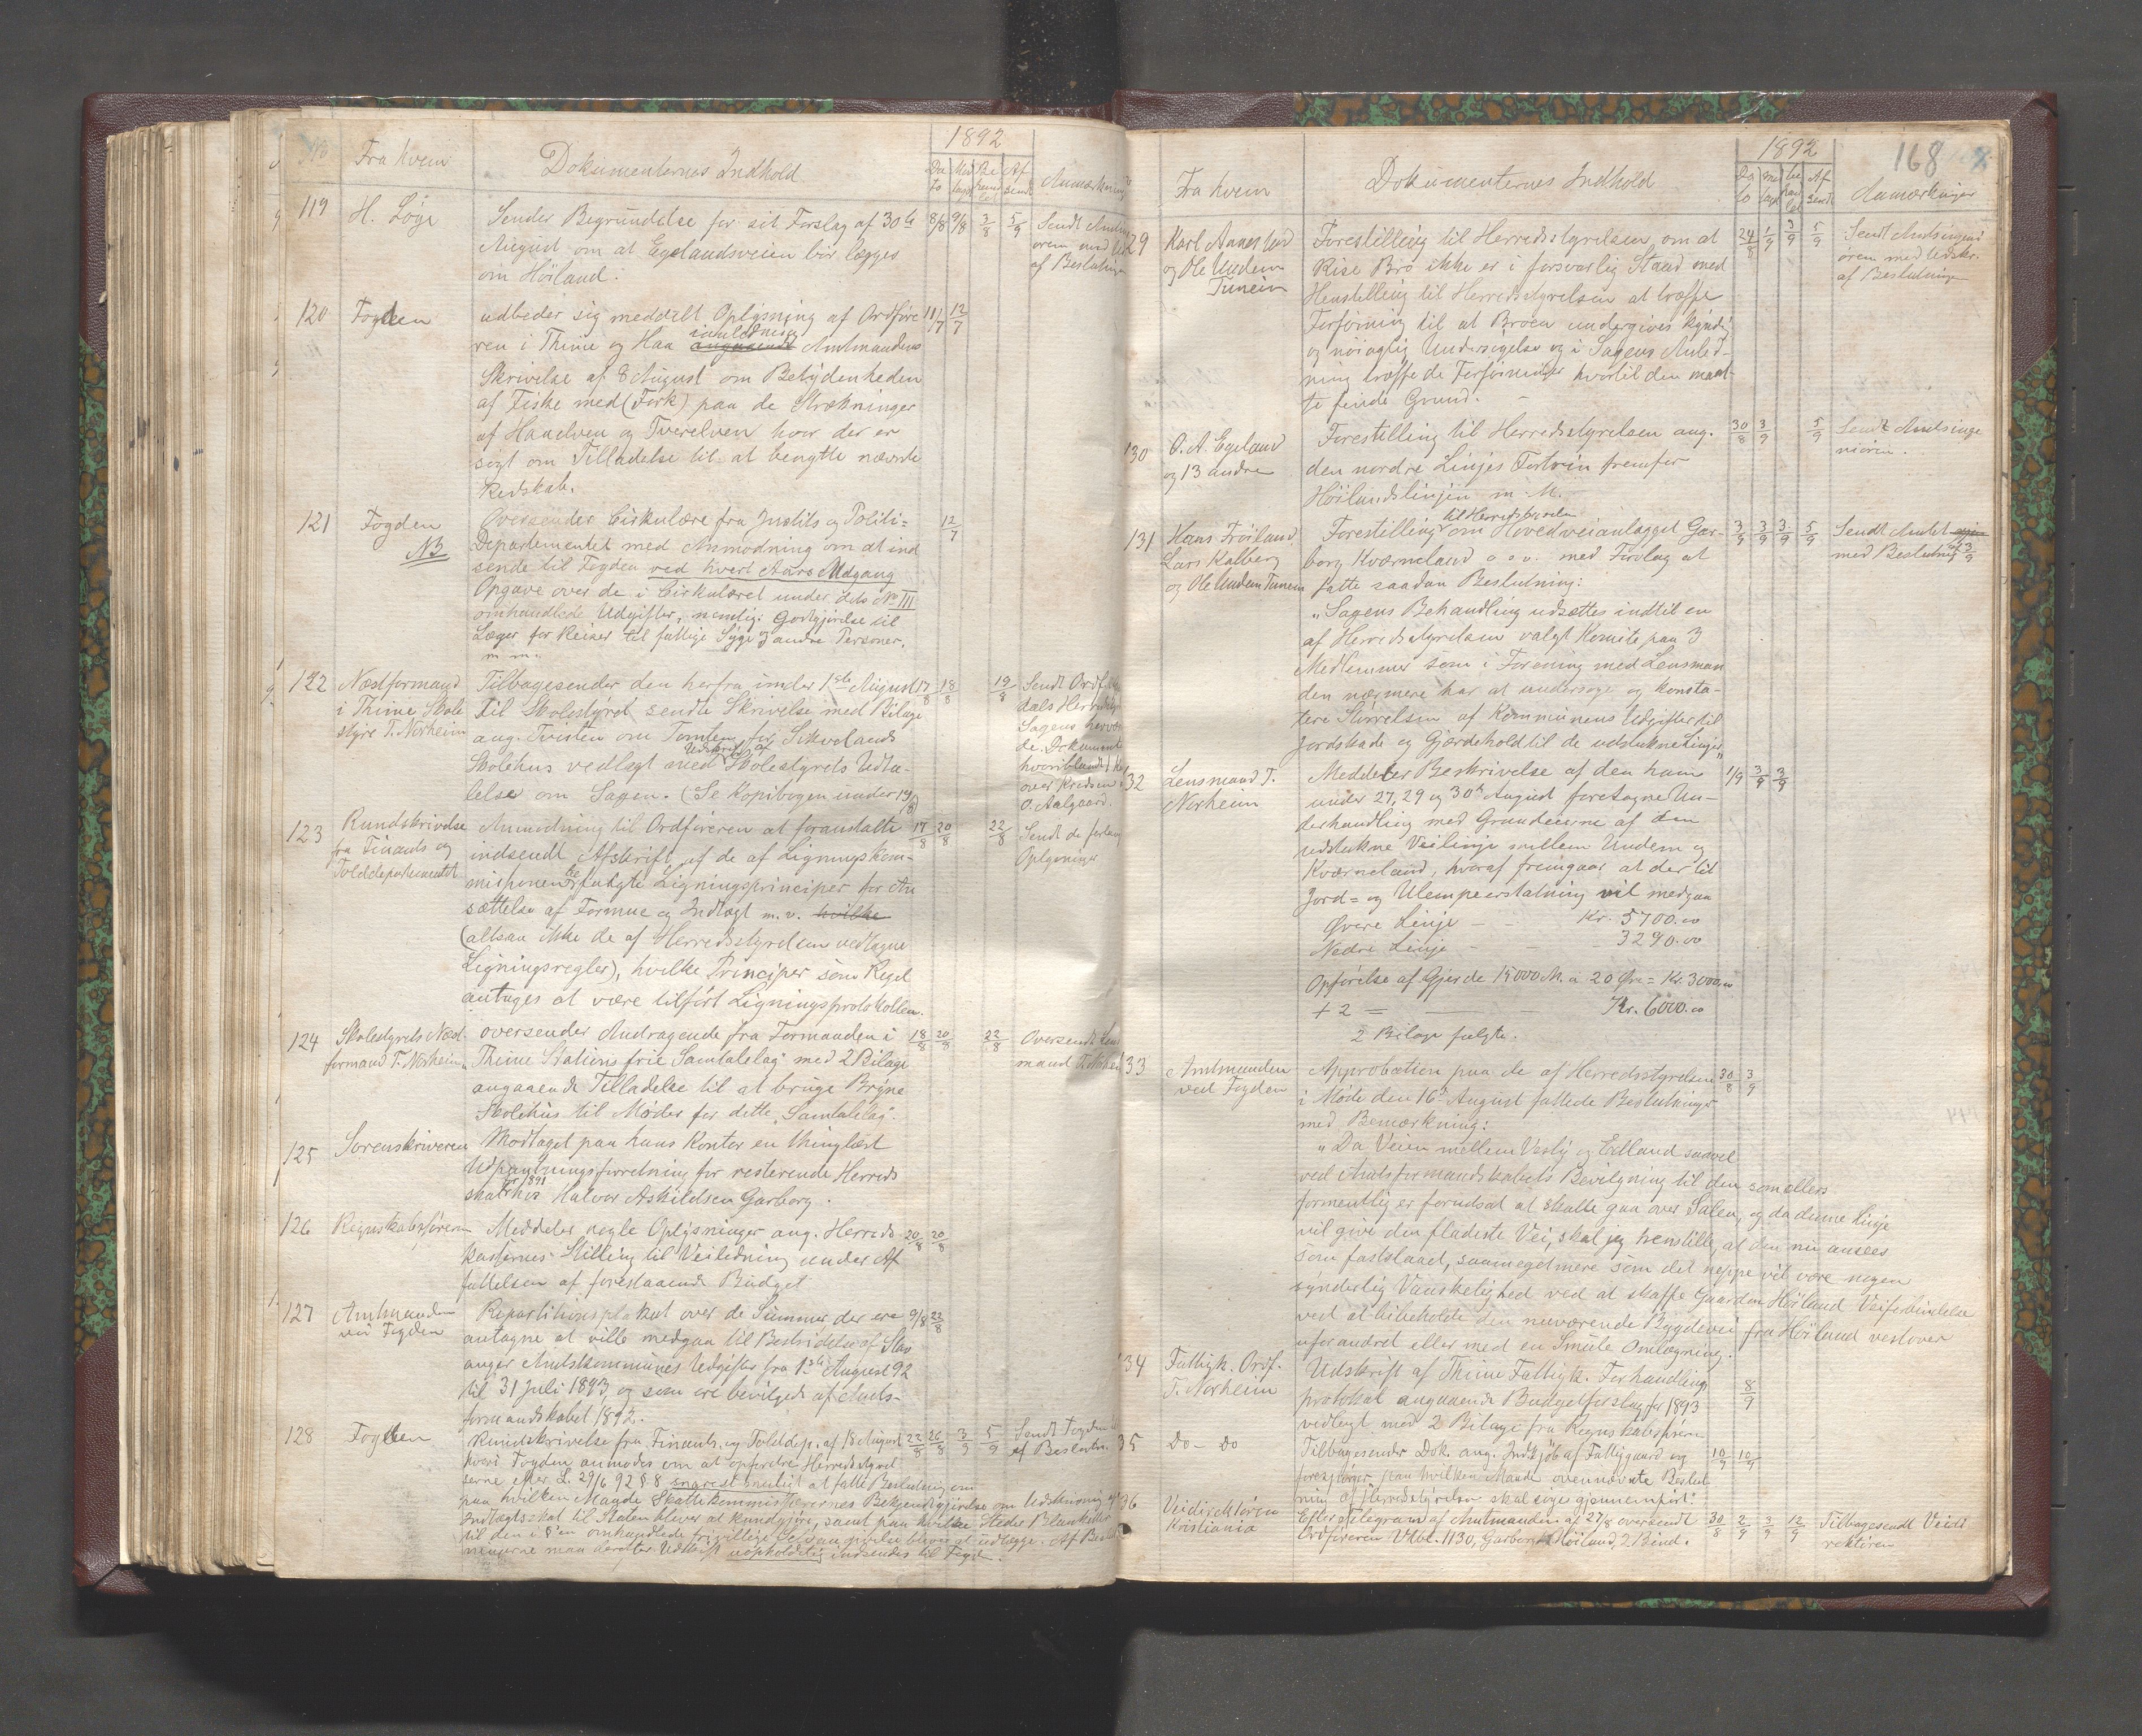 No
Fra hvem
Dokumenternes Indhold
1892
Da to
Mod taget
Be hand let
Af sendt
Anmærkning
119 H. Løge Sender Begrundelse for sit Forslag af 30te 8/8 9/8 3/8 5/9 Sendt Amtsin
August om at Egelandsveien bør lægges øren med Uds
om Höiland. af Beslutnin
120 Fogden udbeder sig meddelt Oplysning af Ordføre 11/7 12/7
ren i Thime og Haa angaaende ianledning Amtmandens
Skrivelse af 8 August om Betydenheden
af Fiske med (Fork) paa de Strækninger
af Haaelven og Tverelven hvor der er
søgt om Tilladelse til at benytte nævnte
Redskab.
121 Fogden Oversender Cirkulære fra Justits og Politi= 12/7
NB Departementet med Anmodning om at ind
sende til Fogden ved hvert Aars Udgang
Opgave over de i Cirkulæret under dets No III
omhandlede Udgifter, nemlig: Godtgjörelse til
Læger for Reiser til fattige Syge og andre Personer.
m m.
122 Næstformand Tilbagesender den herfra under 1ste August 17/8 18/8 19/8 Sendt Ordf.
i Thime Skole til Skolestyret sendte Skrivelse med Bilage dals Herreds
styre T. Norheim ang. Tvisten om Tomten for Sikvelands Sagens herved
Skolehus vedlagt med Udskrift af Skolestyrets Udta- de. Dokument
lelse om Sagen. (Se Kopibogen under 19/8) hvoriblandt 1 Ka
over Kredsen
O. Aalgaard.
123 Rundskrivelse Anmodning til Ordføreren at foranstalte 17/8 20/8 22/8 Sendt de forlan
fra Finants og indsendt Afskrift af de af Ligningskom- Oplysninger
Tolddepartementet misjonen befulgte Ligningsprinciper for An
sættelse af Formue og Indtægt m. v. hvilke
(altsaa ikke de af Herredsstyrelsen vedtagne
Ligningsregler), hvilke Principer som Regel
antages at være tilført Ligningsprotokollen.
124 Skolestyrets Næst- oversender Andragende fra Formanden i 18/8 20/8 22/8 Oversendt Lens
formand T. Norheim „Thime Stations frie Samtalelag" med 2 Bilage mand T. Norhei
angaaende Tilladelse til at bruge Bryne
Skolehus til Møder for dette „Samtalelag".
125 Sorenskriveren Modtaget paa hans Kontor en thinglæst
Udpantningsforretning for resterende Herreds
skat for 1891 hos Halvor Askildsen Garborg.
126 Regnskabsføreren Meddeler nogle Oplysninger ang. Herreds 20/8 20/8
kassernes Stilling til Veiledning under Af
fattelsen af forestaaende Budget
127 Amtmanden Repartitionsplakat over de Summer der ere 9/8 23/8
ved Fogden antagne at ville medgaa til Bestridelse af Stav
anger Amtskommunes Udgifter fra 1ste August 92
til 31 Juli 1893, og som ere bevilgede af Amts-
formandskabet 1892.
128 Fogden Rundskrivelse fra Finants. og Tolddep. af 18 August 22/8 26/8 3/9 5/9 Sendt Fogden
hvori Fogden anmodes om at opfordre Herredsstyrel af Beslutn.
serne efter L. 29/6 92 § 8 snarest muligt at fatte Beslutning om
paa hvilken Maade Skattekommissjonernes Bekjendtgjörelse om Udskrivning af
Indtægtsskat til Staten bliver at kundgjøre, samt paa hvilke Steder Blanketter
til den i § en omhandlede frivillige Selvangivelse bliver at udlægge. Af Beslut
ningerne maa derefter Udskrift uopholdelig indsendes til Fogd.
168
Fra hvem
Dokumenternes Indhold
1892
Da to
mod taget
be hand let
Af sendt
Anmærkninger
29 Karl Aanestad Forestilling til Herredsstyrelsen om at 24/8 1/9 3/9 5/9 Sendt Amtsingeni
og Ole Undem Rise Bro ikke er i forsvarlig Stand med øren med Udskr.
Tunein Henstilling til Herredsstyrelsen at træffe af Beslutninge
Forføining til at Broen undergives kyndig
og nöiagtig Undersøgelse og i Sagens Anled-
ning træffe de Forføininger hvortil den maat-
te finde Grund.
130 O. A. Egeland Forestilling til Herredsstyrelsen ang. 30/8 3/9 5/9 Sendt Amtsinge
og 13 andre den nordre Linjes Fortrin fremfor niøren.
Höilandslinjen m. M.
131 Hans Fröiland Forestilling til Herredsstyrelsen om Hovedveianlægget Gar- 3/9 3/9 3/9 5/9 Sendt Amtet
Lars Kalberg borg Kværneland o s v. med Forslag at med Beslutning af 3/9
og Ole Undem Tunem fatte saadan Beslutning:
„Sagens Behandling udsættes indtil en
af Herredsstyrelsen valgt Komite paa 3
Medlemmer som i Forening med Lensman
den nærmere har at undersøge og konsta-
tere Størrelsen af Kommunens Udgifter til
Jordskade og Gjærdehold til de udstukne Linjer"
32 Lensmand T. Meddeler Beskrivelse af den ham 1/9 3/9 3/9
Norheim under 27, 29 og 30te August foretagne Un-
derhandling med Grundeierne af den
udstukne Veilinje mellem Undem og
Kværneland, hvoraf fremgaar at der til
Jord= og Ulempeerstatning vil medgaa
Øvre Linje - - Kr. 5700.00
Nedre Linje - - - 3290.00
Opførelse af Gjerde 15000 M. a 20 Øre = Kr. 3000.00
+ 2 = - - Kr. 6000.00
2 Bilage fulgte.
33 Amtmanden Approbation paa de af Herredsstyrelsen 30/8 3/9
ved Fogden i Møde den 16de August fattede Beslutninger
med Bemærkning:
„Da Veien mellem Vesly og Edland saavel
ved Amtsformandskabets Bevilgning til den som ellers
formentlig er forudsat at skulle gaa over Salen, og da denne Linje
vil give den fladeste Vei, skal jeg henstille, at den nu ansees
som fastslaaet, saameget mere som det neppe vil være nogen
synderlig Vanskelighed ved at skaffe Gaarden Höiland Veiforbindelse
ved at bibeholde den nuværende Bygdevei fra Höiland vestover
uforandret eller med en Smule Omlægning.
34 Fattigk. Ordf. Udskrift af Thime Fattigk. Forhandlings
T. Norheim protokol angaaende Budgetforslag for 1893 8/9
vedlagt med 2 Bilage fra Regnskabsføreren
35 Do - Do Tilbagesender Dok. ang. Indkjøb af Fattiggaard og 10/9 10/9
forespørger paa hvilken Maade ovennævnte Beslut
ning af Herredsstyrelsen skal søges gjennemført.
36 Veidirektøren Efter Telegram af Amtmanden af 27/8 oversendt 30/8 2/9 3/9 12/9 Tilbagesendt Veidi
Kristiania Ordføreren Vkbl. 1130, Garborg Höiland, 2 Bind. rektøren